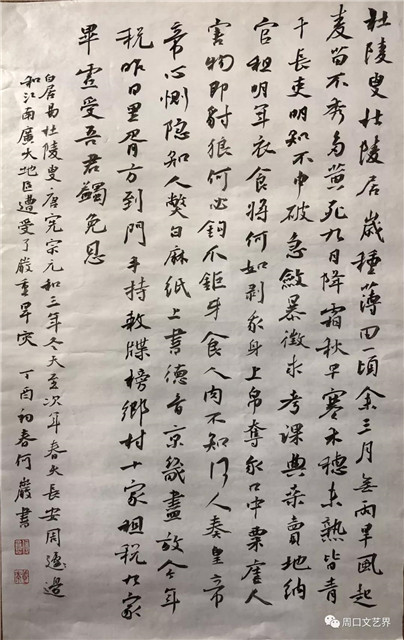 杜陵叟杜陵居歲種薄田一頃余三月無雨旱風起
麦苗不秀多黄死九月降霜秋早寒禾穗未熟皆青
干長吏明知不申破急斂暴徵求考課典桑賣地納
官租明年衣食將何如剥我身上帛奪我口中粟虐人
害物即豺狼何必鈎爪鉅牙食人肉不知何人奏皇帝
帝心惻隐知人弊白麻紙上書德音京畿盡放今年
税昨日里胥方到門手持敕牒榜鄉村十家租税九家
畢虚受吾君蠲免恩
白居易杜陵叟唐宪宗元和三年冬天至次年春天長安周邊
和江南廣大地区遭受了嚴重旱灾 丁酉初春何嚴書
周口文艺界